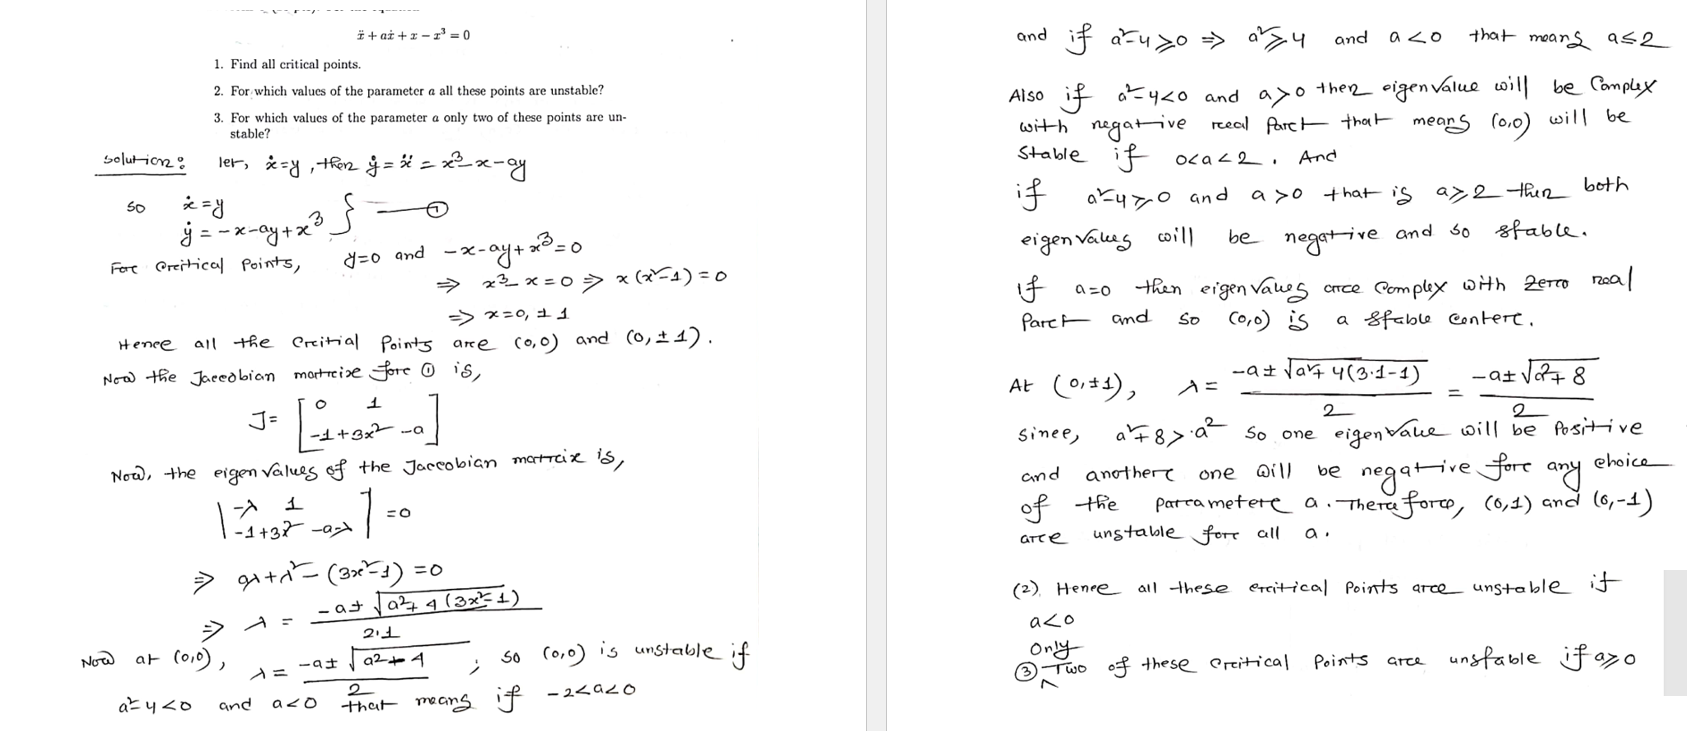 ẍ + aẋ + x − x³ = 0
1. Find all critical points.
2. For which values of the parameter a all these points are unstable?
3. For which values of the parameter a only two of these points are un-
stable?
Solution: let, ẋ=y, then ẏ = ẍ = x³-x-ay
so ẋ=y
ẏ = -x-ay+x³ } —— ①
For Critical Points, y=0 and -x-ay+x³=0
⇒ x³-x=0 ⇒ x(x²-1)=0
⇒ x=0, ±1
Hence all the Critial Points are (0,0) and (0,±1).
Now the Jaccobian matrix for ① is,
J= [ 0 1
-1+3x² -a ]
Now, the eigen values of the Jaccobian matrix is,
| -λ 1
-1+3x² -a-λ | =0
⇒ aλ+λ²-(3x²-1)=0
⇒ λ = (-a±√(a²+4(3x²-1)))/2.1
Now at (0,0), λ= (-a±√(a²-4))/2 ; so (0,0) is unstable if
a²-4<0 and a<0 that means if -2<a<0
and if a²-4≥0 ⇒ a²≥4 and a<0 that means a≤2
Also if a²-4<0 and a>0 then eigenvalue will be Complex
with negative real Part that means (0,0) will be
stable if 0<a<2. And
if a²-4≥0 and a>0 that is a≥2 then both
eigenvalues will be negative and so stable.
If a=0 then eigenvalues are Complex with zero real
Part and so (0,0) is a stable center.
At (0,±1), λ= (-a±√(a²+4(3·1-1)))/2 = (-a±√(a²+8))/2
since, a²+8>a² so one eigenvalue will be Positive
and another one will be negative for any choice
of the parameter a. Therefore, (0,1) and (0,-1)
are unstable for all a.
(2). Hence all these critical Points are unstable if
a<0
Only
③ Two of these Critical Points are unstable if a≥0